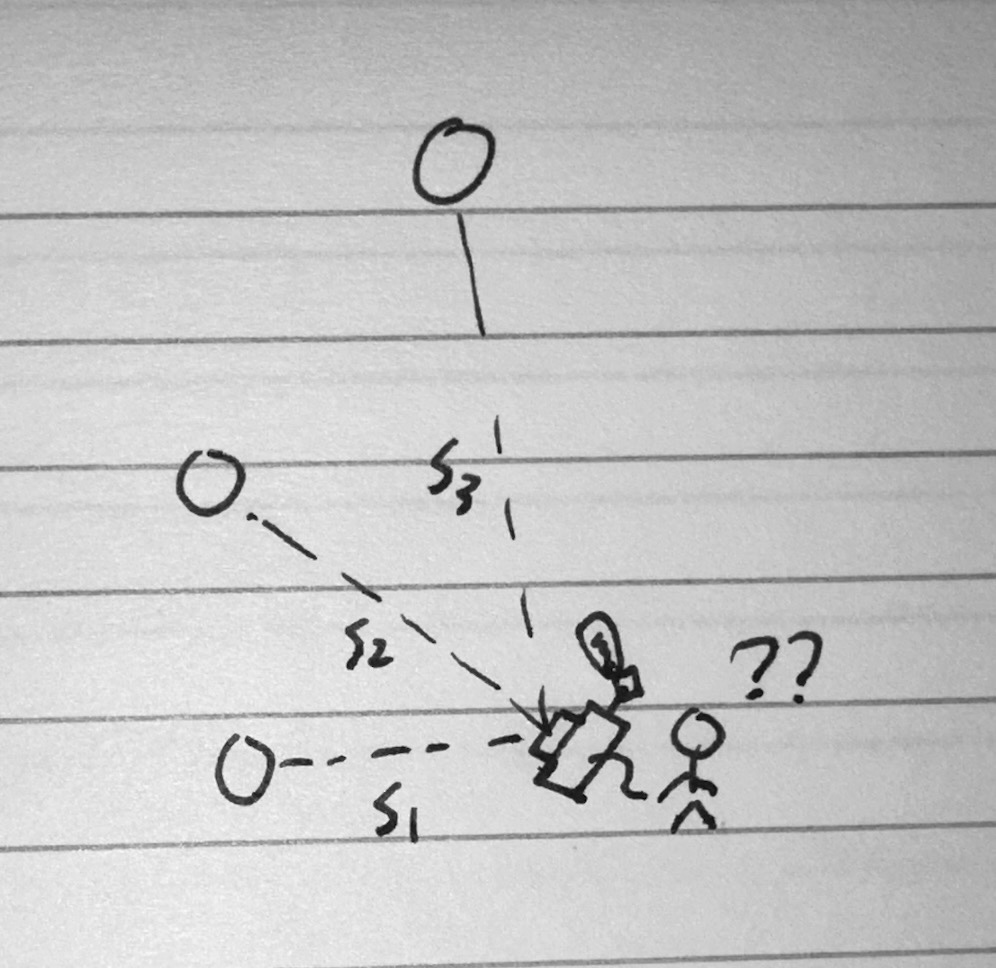 S3
S2
??
S1